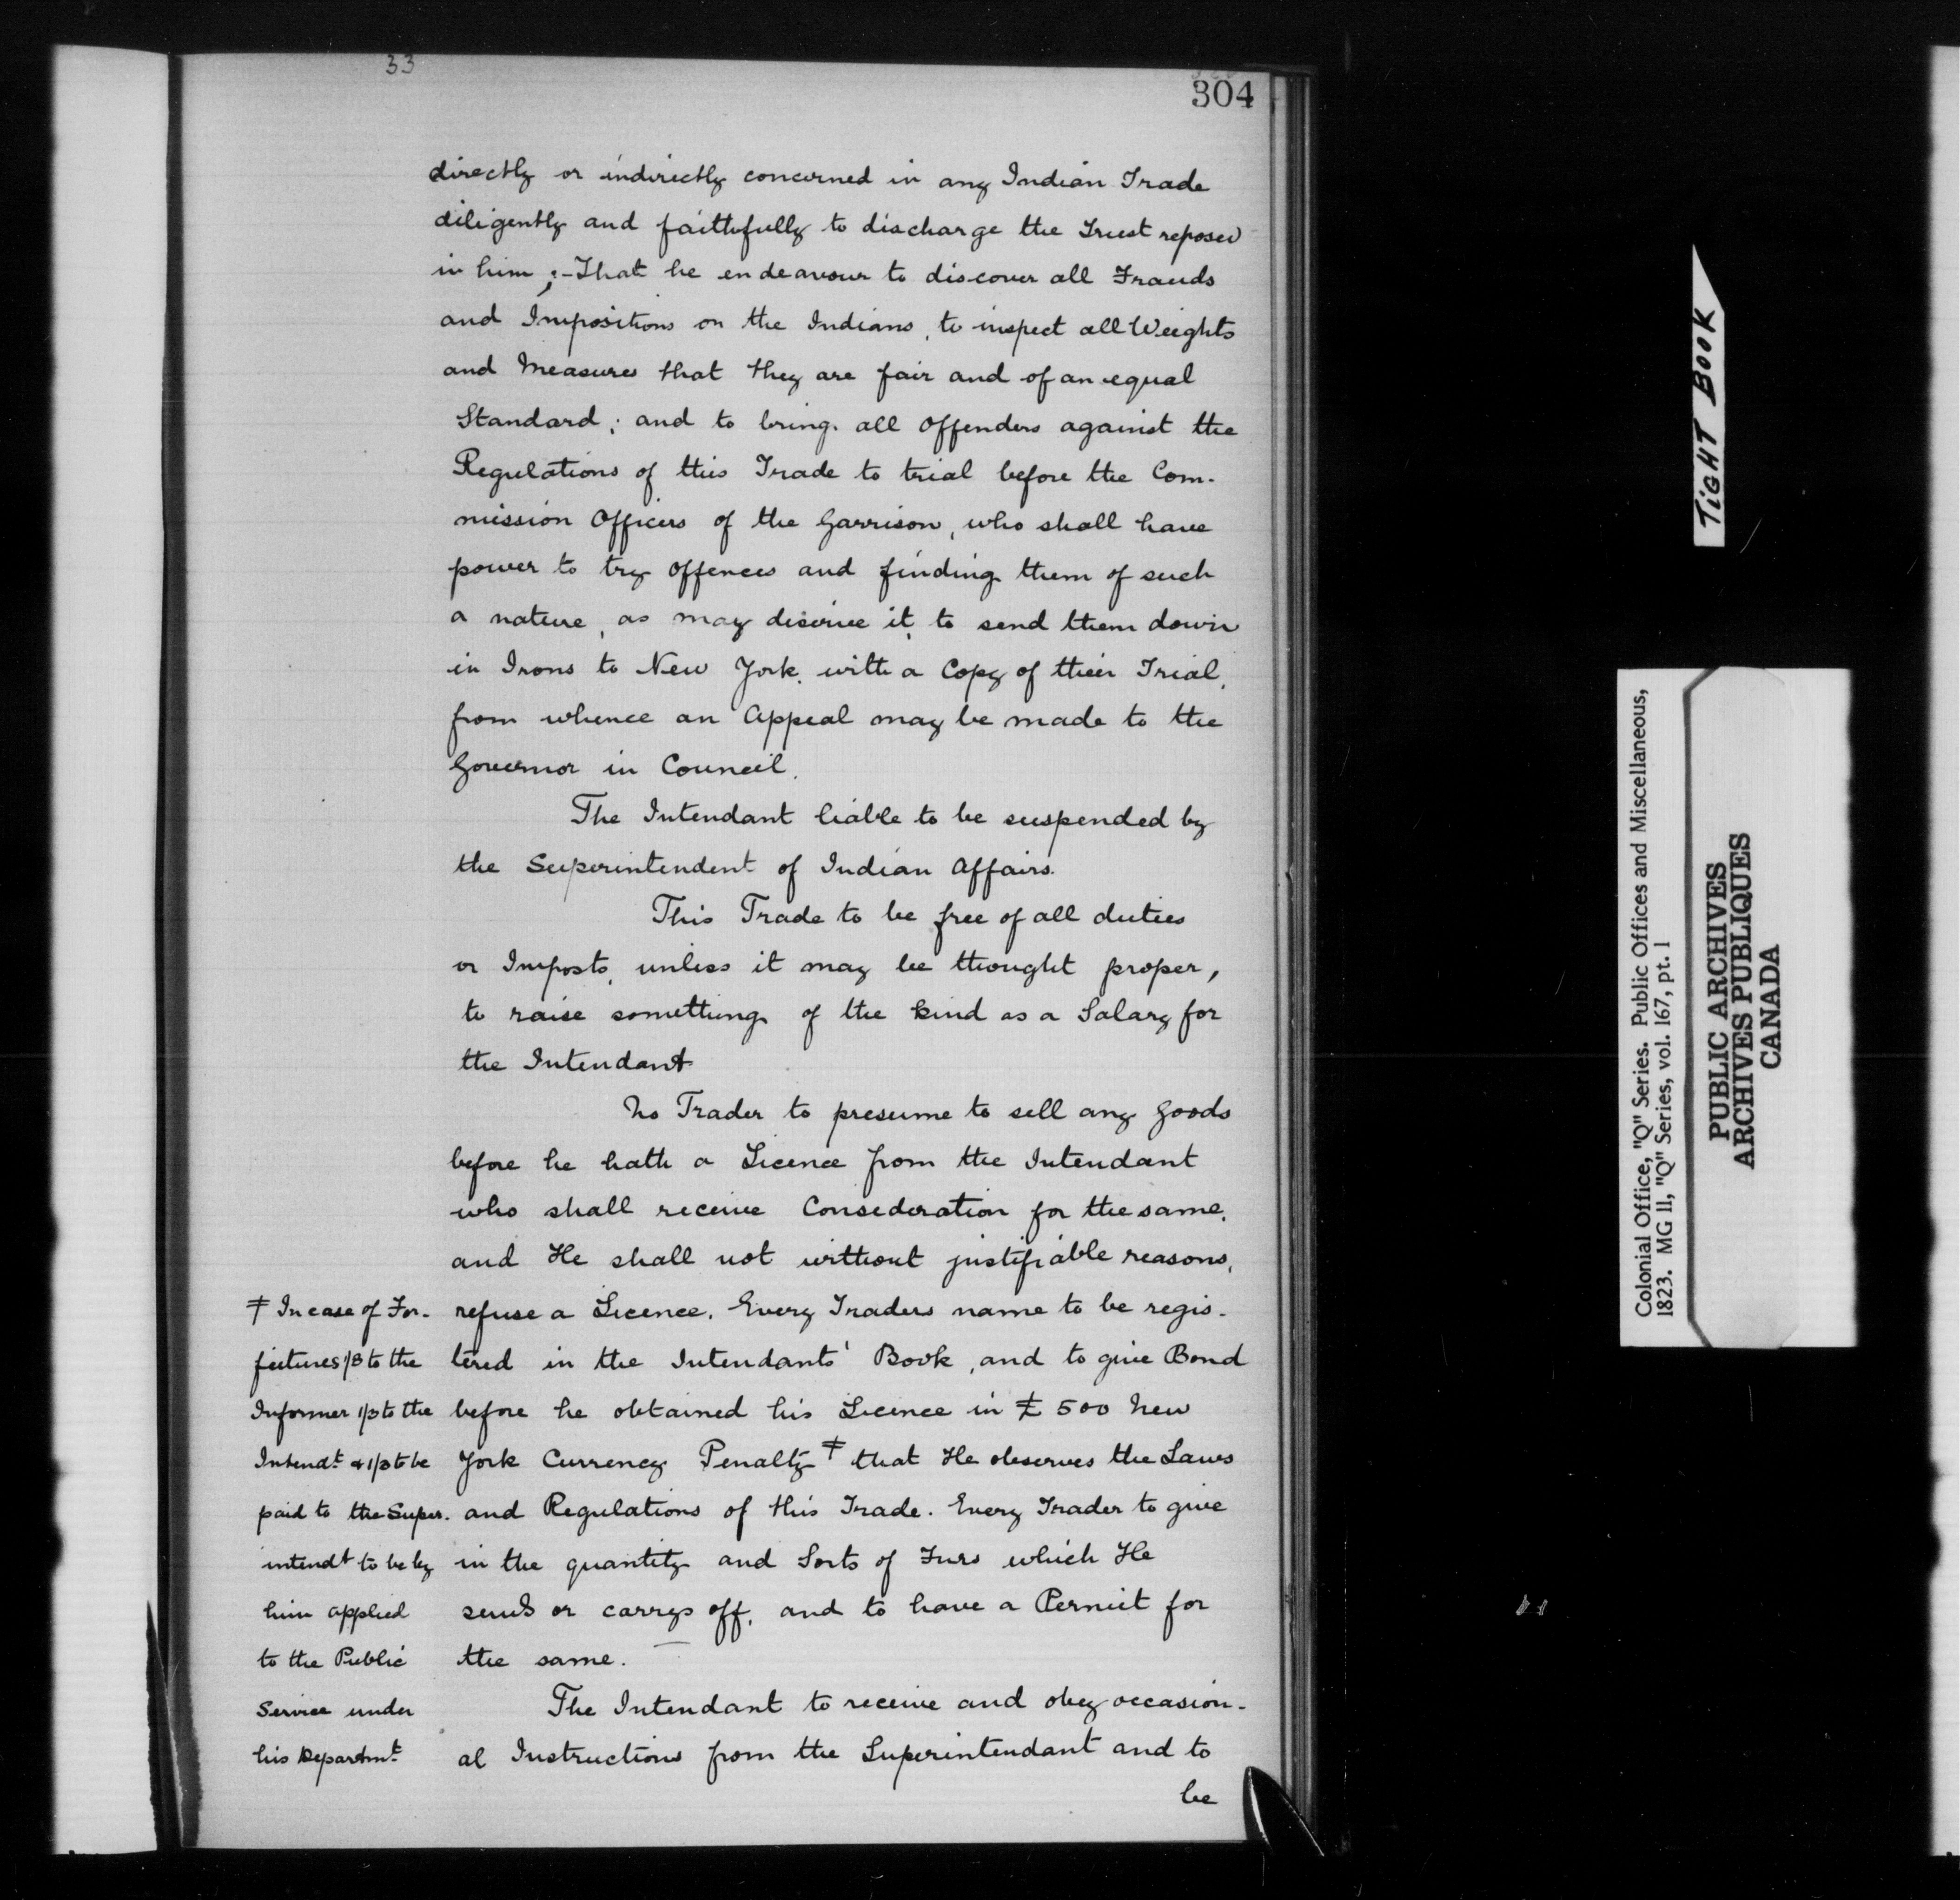 33
304
directly or indirectly concerned in any Indian Trade
diligently and faithfully to discharge the Trust reposed
in him ;- That he endeavour to discover all Frauds
and Impositions on the Indians, to inspect all Weights
and Measures that they are fair and of an equal
Standard; and to bring all Offenders against the
Regulations of this Trade to trial before the Com-
mission Officers of the Garrison, who shall have
power to try Offences and finding them of such
a nature, as may deserve it, to send them down
in Irons to New York, with a Copy of their Trial,
from whence an Appeal may be made to the
Governor in Council.
The Intendant liable to be suspended by
the Superintendent of Indian Affairs.
This Trade to be free of all duties
or Imposts, unless it may be thought proper,
to raise something of the kind as a Salary for
the Intendant
No Trader to presume to sell any Goods
before he hath a Licence from the Intendant
who shall receive Consideration for the same,
and He shall not without justifiable reasons,
refuse a Licence. Every Traders name to be regis-
tered in the Intendants' Book, and to give Bond
before he obtained his Licence in £ 500 New
York Currency Penalty ‡ that He observes the Laws
and Regulations of this Trade. Every Trader to give
in the quantity and Sorts of Furs which He
sends or carrys off, and to have a Permit for
the same.
The Intendant to receive and obey occasion-
al Instructions from the Superintendant and to
be
‡ In case of For-
feitures 1/3 to the
Informer 1/3 to the
Intendt. & 1/3 to be
paid to the Super-
intendt to be by
him applied
to the Public
Service under
his Departmt.
TIGHT BOOK
Colonial Office, "Q" Series. Public Offices and Miscellaneous,
1823. MG 11, "Q" Series, vol. 167, pt. 1
PUBLIC ARCHIVES
ARCHIVES PUBLIQUES
CANADA